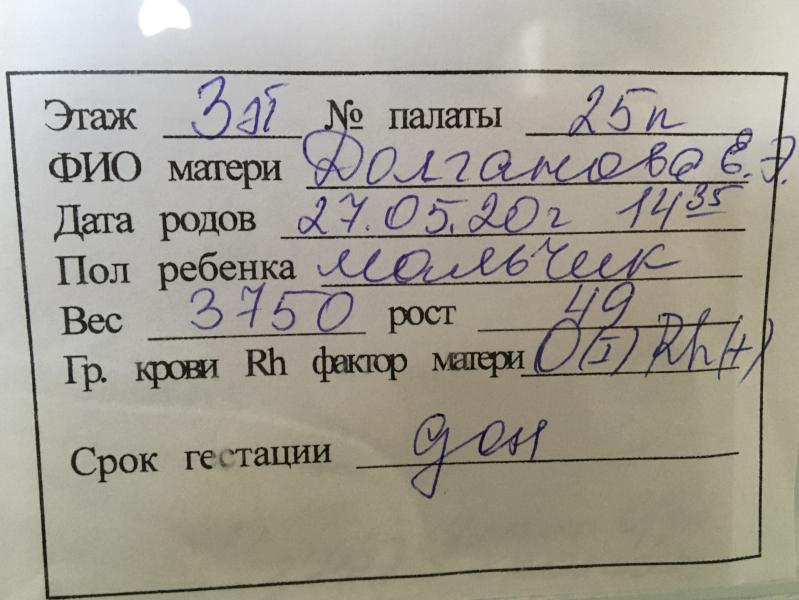 Этаж 3эт № палаты 25п
ФИО матери Долганова Е.Э.
Дата родов 27.05.20г 14 35
Пол ребенка мальчик
Вес 3750 рост 49
Гр. крови Rh фактор матери O(I) Rh(+)
Срок гестации дон